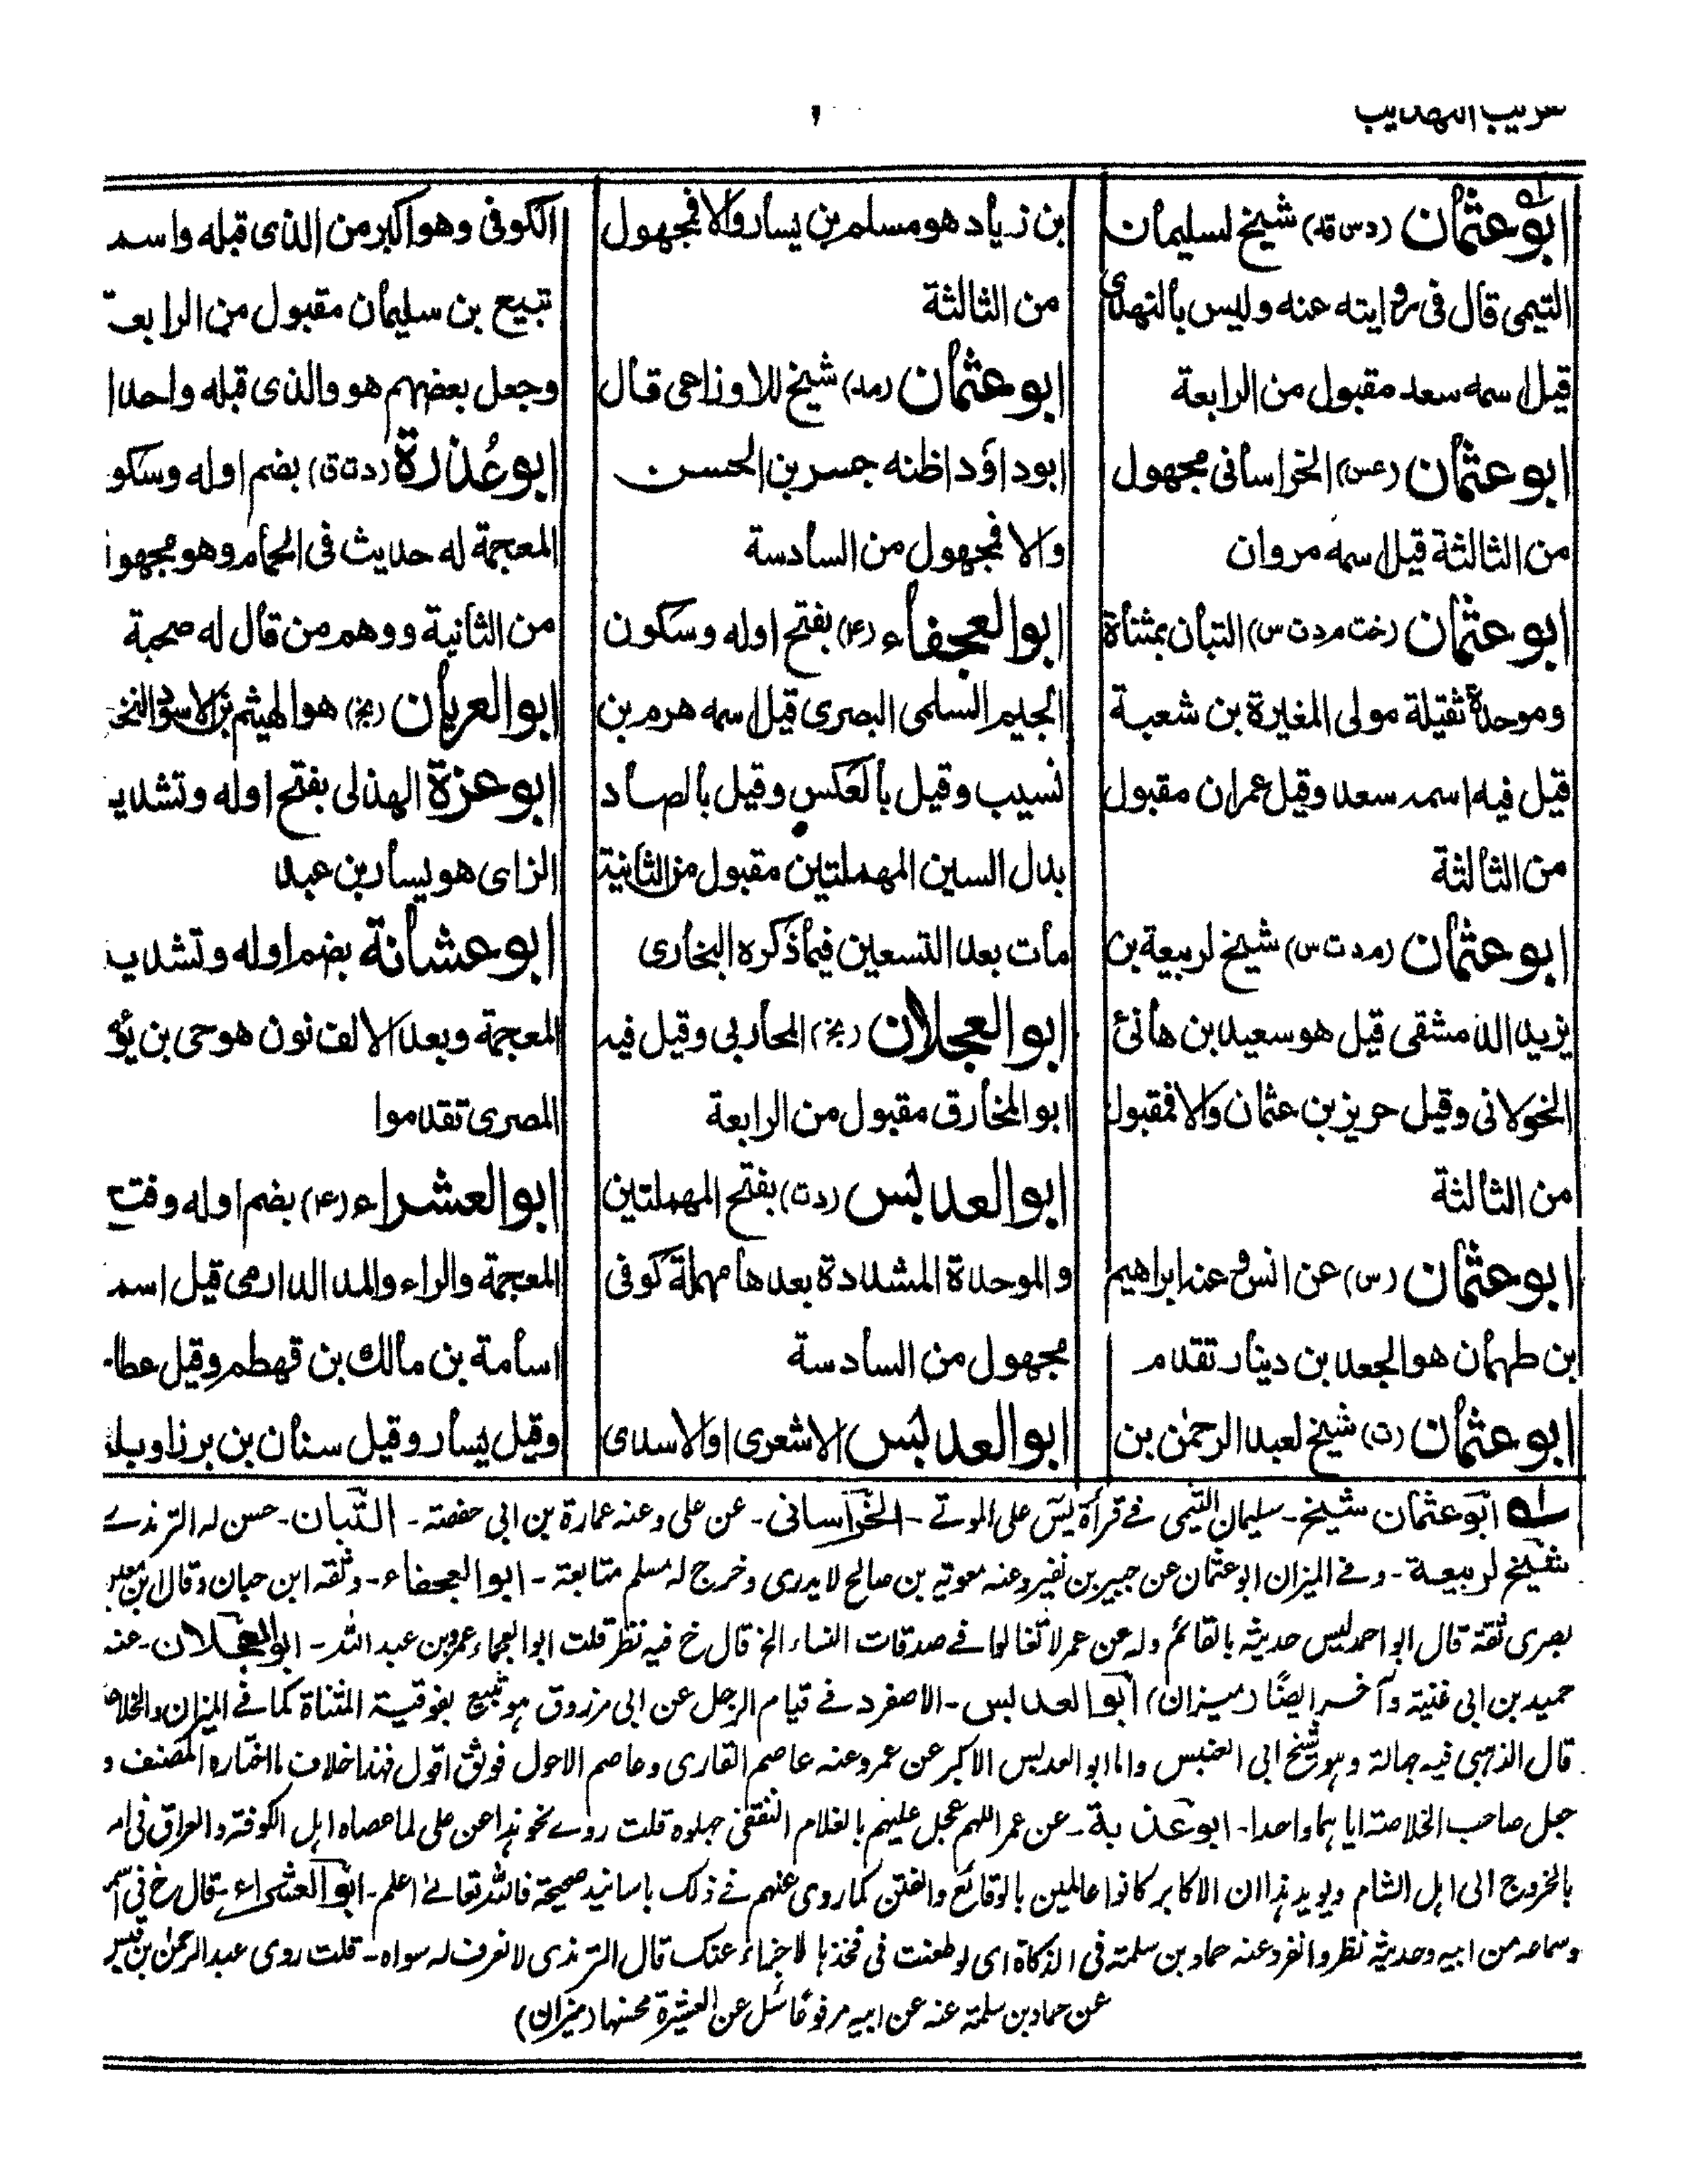 تقريب التهذيب
ابو عثمان (د س قد) شيخ لسليمان
التيمى قال فى روايته عنه وليس بالنهدى
قيل اسمه سعد مقبول من الرابعة
ابو عثمان (عس) الخراسانى مجهول
من الثالثة قيل اسمه مروان
ابو عثمان (خت م د ت س) التبان بمثناة
وموحدة ثقيلة مولى المغيرة بن شعبة
قيل فيه اسمه سعد وقيل عمران مقبول
من الثالثة
ابو عثمان (م د ت س) شيخ لربيعة بن
يزيد الدمشقى قيل هو سعيد بن هانئ
الخولانى وقيل حريز بن عثمان والا فمقبول
من الثالثة
ابو عثمان (س) عن انس وعنه ابراهيم
بن طهمان هو الجعد بن دينار تقدم
ابو عثمان (ت) شيخ لعبد الرحمٰن بن
بن زياد هو مسلم بن يسار والا فمجهول
من الثالثة
ابو عثمان (مد) شيخ للاوزاعى قال
ابو داؤد اظنه جسر بن الحسن
والا فمجهول من السادسة
ابو العجفاء (٤) بفتح اوله وسكون
الجيم السلمى البصرى قيل اسمه هرم بن
نسيب وقيل بالعكس وقيل بالصاد
بدل السين المهملتين مقبول من الثانية
مات بعد التسعين فيما ذكره البخارى
ابو العجلان (بخ) المحاربى وقيل فيه
ابو المخارق مقبول من الرابعة
ابو العدبس (د ت) بفتح المهملتين
والموحدة المشددة بعدها مهملة كوفى
مجهول من السادسة
ابو العدبس الاشعرى او الاسدى
الكوفى وهو اكبر من الذى قبله واسمه
تبيع بن سليمان مقبول من الرابعة
وجعل بعضهم هو والذى قبله واحدا
ابو عُذرة (د ت ق) بضم اوله وسكو
المعجمة له حديث فى الحمام وهو مجهو
من الثانية ووهم من قال له صحبة
ابو العريان (بخ) هو الهيثم بن الاسود النخ
ابو عزة الهذلى بفتح اوله وتشديد
الزاى هو يسار بن عبد
ابو عشانة بضم اوله وتشديد
المعجمة وبعد الالف نون هو حى بن يؤ
المصرى تقدموا
ابو العشراء (٤) بضم اوله وفتح
المعجمة والراء والمد الدارمى قيل اسمه
اسامة بن مالك بن قهطم وقيل عطا
وقيل يسار وقيل سنان بن برز او بلز
له ابو عثمان شيخ - سليمان التيمى فے قرأة يٰسٓ على الموتے - الخراسانى - عن على وعنه عمارة بن ابى حفصة - التبان - حسن له الترمذے
شيخ لربيعة - وفے الميزان ابو عثمان عن جبير بن نفير وعنه معوية بن صالح لا يدرى وخرج له مسلم متابعة - ابو العجفاء - وثقه ابن حبان وقال ابن معين
بصرى ثقة قال ابو احمد ليس حديثه بالقائم وله عن عمر لا تغالوا فے صدقات النساء الخ قال خ فيه نظر قلت ابو العجماء عمرو بن عبد الله - ابو العجلان - عنه
حميد بن ابى غنية وآخر ايضًا (ميزان) ابو العدبس - الاصغر د فے قيام الرجل عن ابى مرزوق هو تبيع بفوقية المثناة كما فے الميزان والخلاصة
قال الذهبى فيه جهالة وهو شيخ ابى العنبس واما ابو العدبس الاكبر عن عمر وعنه عاصم القارى وعاصم الاحول فوثق اقول فهذا خلاف ما اختاره المصنف و
جعل صاحب الخلاصة اياهما واحدا - ابو عذبة - عن عمر اللهم عجل عليهم بالغلام الثقفى قلت روے نحو هذا عن على لما عصاه اهل الكوفة والعراق فى امر
بالخروج الى اهل الشام ويويد هذا ان الاكابر كانوا عالمين بالوقائع والفتن كما روى عنهم فے ذلك باسانيد صحيحة فالله تعالےٰ اعلم - ابو العشراء - قال خ فى اسمه
وسماعه من ابيه وحديثه نظر وانفرد عنه حماد بن سلمة فى الذكاة اى لو طعنت فى فخذها لاجزاء عنك قال الترمذى لا نعرف له سواه - قلت روى عبد الرحمٰن بن قيس
عن حماد بن سلمة عنه عن ابيه مرفوعا سئل عن العتيرة فحسنها (ميزان)